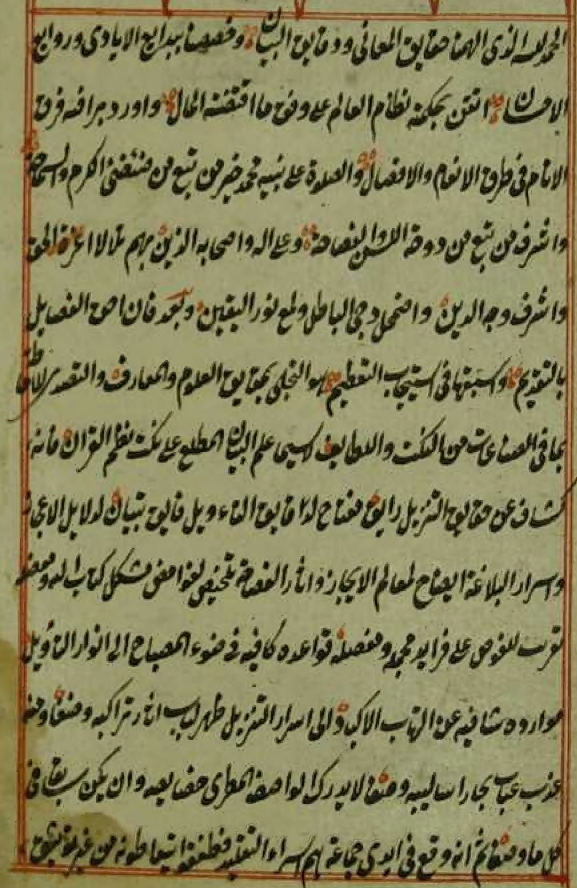 الحمد لله الذى الهمنا حقايق المعانى ودقايق البيان وخصصنا ببدايع الايادى وروايع
الاحسان اتقن بحكمته نظام العالم على وفق ما اقتضته الحال واورد برافته فرق
الانام فى طرق الانعام والافضال والصلوة على نبيه محمد خير من نبع من ضئضئ الكرم والسماحة
واشرف من نبع من دوحة اللسن والفصاحة وعلى اله واصحابه الذين بهم تلالا غرة الحق
واشرق وجه الدين واضمحل دجى الباطل ولمع نور اليقين وبعد فان احق الفضايل
بالتقديم واسبقها فى استيجاب التعظيم هو التحلى بحقايق العلوم والمعارف والتصدى للاحاطة
بما فى الصناعات من النكت واللطايف لا سيما علم البيان المطلع على نكت نظم القران فانه
كشاف عن حقايق التنزيل رايق مفتاح لدقايق التاويل فايق تبيان لدلايل الاعجاز
واسرار البلاغة ايضاح لمعالم الايجاز واثار الفصاحة تلخيص لغوامض مشكل كتاب الله ومعضله
تقريب للغوص على فرايد مجمله ومفصله قواعده كافية فى ضوء المصباح الى انوار التاويل
موارده شافية عن التهاب الاكباد الى اسرار التنزيل ظهر لباب اثار تراكيبه وصفا وصفه
عذب عباب بحار اساليبه وصفا لا يدرك الواصف المطرى خصايصه وان يكن سابقا فى
كل ما وصفا ثم انه وقع فى ايدى جماعة هم اسراء التقليد فطفقوا يتعاطونه من غير توثيق